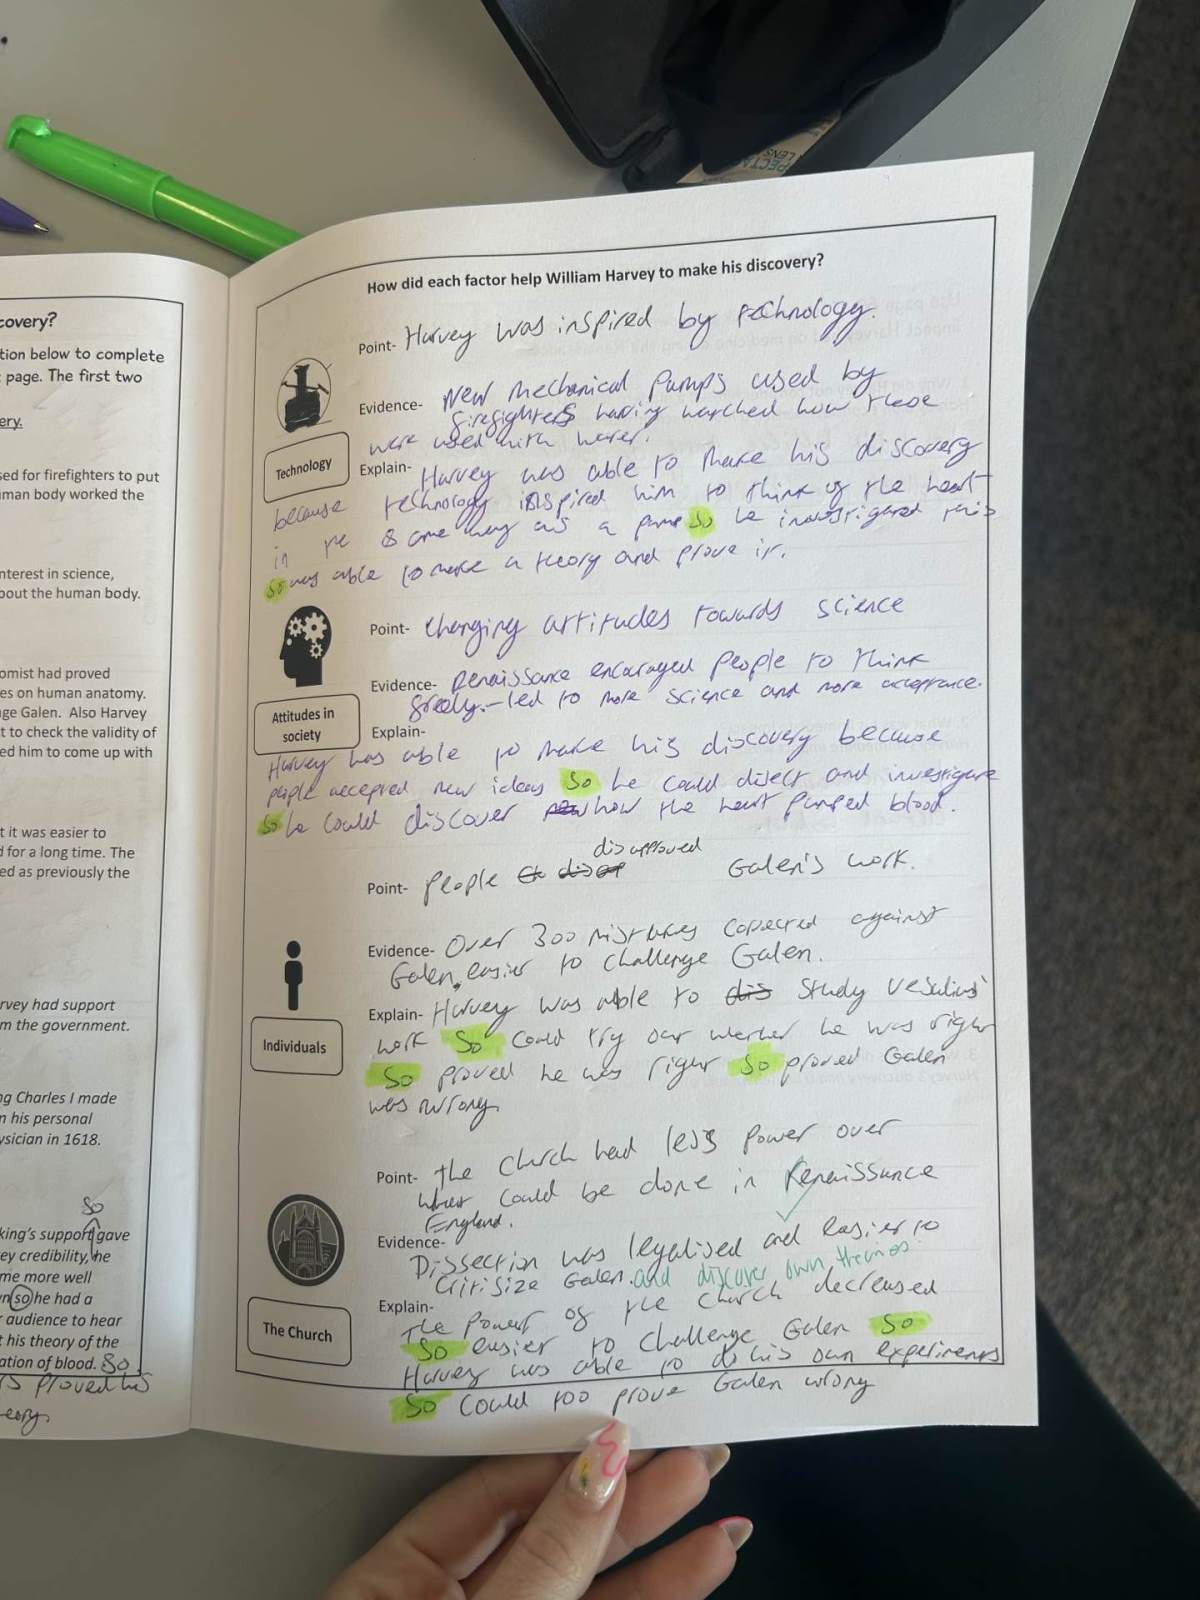 PECTA
LENS
covery?
tion below to complete
page. The first two
ery.
sed for firefighters to put
uman body worked the
nterest in science,
bout the human body.
omist had proved
es on human anatomy.
ge Galen. Also Harvey
t to check the validity of
ed him to come up with
t it was easier to
d for a long time. The
ed as previously the
rvey had support
m the government.
ng Charles I made
n his personal
ysician in 1618.
so
king's support gave
ey credibility, he
me more well
n so he had a
audience to hear
t his theory of the
ation of blood. So
proved his
eory.
How did each factor help William Harvey to make his discovery?
Point- Harvey was inspired by technology.
Evidence- New mechanical pumps used by
firefighters having watched how these
were used with water.
Technology
Explain- Harvey was able to make his discovery
because technology inspired him to think of the heart
in the same way as a pump so he investigated this
so was able to make a theory and prove it.
Point- Changing attitudes towards science
Evidence- Renaissance encouraged people to think
freely. - led to more science and more acceptance.
Attitudes in
society
Explain-
Harvey was able to make his discovery because
people accepted new ideas so he could disect and investigate
so he could discover how the heart pumped blood.
disapproved
Point- People Galen's work.
Evidence- Over 300 mistakes corrected against
Galen, easier to challenge Galen.
Individuals
Explain- Harvey was able to study Vesalius'
work so could try out wether he was right
so proved he was right so proved Galen
was wrong.
Point- The Church had less power over
what could be done in Renaissance
England.
Evidence-
Dissection was legalised and easier to
Critisize Galen. and discover own theories.
The Church
Explain-
The power of the church decreased
so easier to challenge Galen so
Harvey was able to do his own experiments
so could too prove Galen wrong